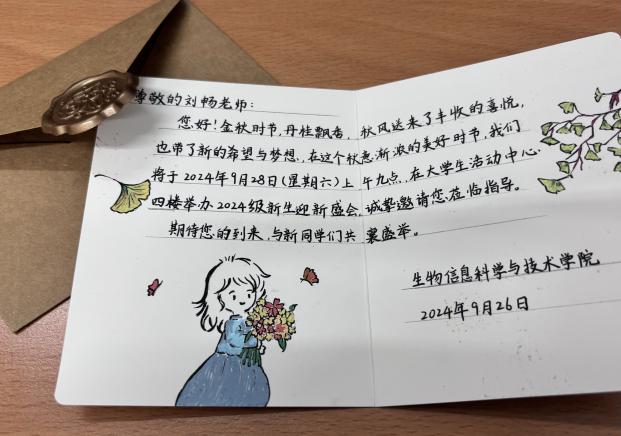 尊敬的刘畅老师：
您好！金秋时节，丹桂飘香，秋风送来了丰收的喜悦，
也带了新的希望与梦想，在这个秋意渐浓的美好时节，我们
将于2024年9月28日(星期六)上午九点，在大学生活动中心
四楼举办2024级新生迎新盛会，诚挚邀请您莅临指导。
期待您的到来，与新同学们共襄盛举。
生物信息科学与技术学院
2024年9月26日